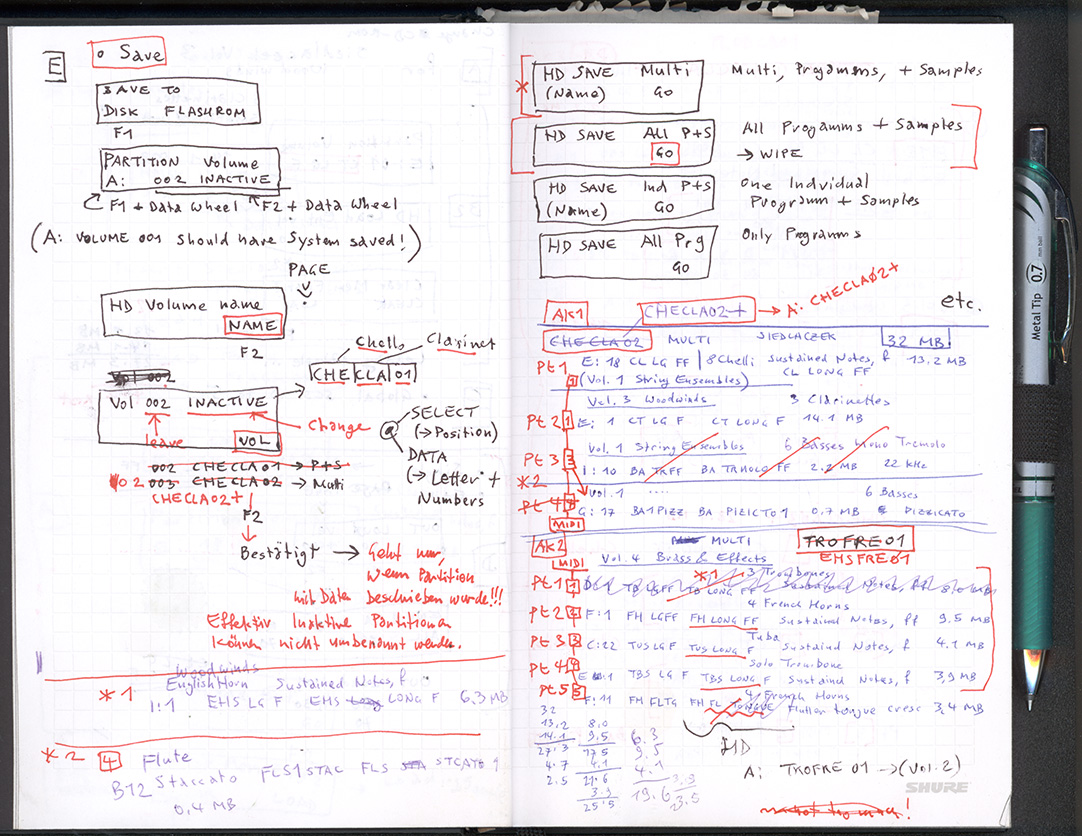 E
• Save
SAVE TO
DISK FLASHROM
F1
PARTITION Volume
A: 002 INACTIVE
F1 + Data Wheel F2 + Data Wheel
(A: VOLUME 001 should have System saved!)
PAGE
HD Volume name
NAME
F2
Chello Clarinet
CHECLA01
Vol 002
Vol 002 INACTIVE
leave VOL Change
SELECT
(→ Position)
DATA
(→ Letter +
Numbers)
002 CHECLA01 → P+S
02 003 CHECLA02 → Multi
CHECLA02+
F2
Bestätigt → Geht nur,
wenn Partition
mit Daten beschrieben wurde!!!
Effektiv Inaktive Partitionen
können nicht umbenannt werden.
Woodwinds
*1 English Horn Sustained Notes, f
1:1 EHS LG F EHS LONG F 6.3 MB
*2 4 Flute
B12 Staccato FLS1STAC FLS STCATO 1
0,4 MB
* HD SAVE Multi
(Name) GO
Multi, Progamms, + Samples
HD SAVE All P+S
GO
All Progamms + Samples
→ WIPE
HD SAVE Ind P+S
(Name) GO
One Indvidual
Programm + Samples
HD SAVE All Prg
GO
Only Programms
etc.
AK1 CHECLA02+ → A: CHECLA02+
CHECLA02 MULTI SIEDLACZEK 32 MB
Pt 1 E: 18 CL LG FF 8 Chelli Sustained Notes, f 13,2 MB
1 (Vol. 1 String Ensembles) CL LONG FF
Vol. 3 Woodwinds 3 Clarinettes
Pt 2 1 E: 1 CT LG F CT LONG F 14.1 MB
Vol. 1 String Ensembles 6 Basses Mono Tremolo
Pt 3 3 1:10 BA TRFF BA TRMOLO FF 2.2 MB 22 kHz
*2
Vol. 1 .... 6 Basses
Pt 4 G: 17 BA1PIZZ BA PIZICTO1 0,7 MB PIZZICATO
MIDI
AK2 MULTI TROFRE01
EHSFRE01
Vol. 4 Brass & Effects
MIDI *1 3 Trombones
Pt 1 1 TB LGFF TB LONG FF Sustained Notes, ff 8,0 MB
4 French Horns
Pt 2 2 F: 1 FH LGFF FH LONG FF Sustained Notes, ff 9.5 MB
Tuba
Pt 3 3 C:22 TUS LG F TUS LONG F Sustaind Notes, f 4.1 MB
Solo Trombone
Pt 4 4 TBS LG F TBS LONG F Sustained Notes, f 3,9 MB
4 French Horns
Pt 5 5 F: 11 FH FLTG FH FL TONGUE Flutter tongue cresc 3,4 MB
32
13.2 8.0
14.1 9.5 6.3
27.3 17.5 9.5
4.7 4.1 4.1
2.5 21.6 19.6 3.9
3.9 23.5
25.5
HD
A: TROFRE 01 → (Vol. 2)
SHURE
Metal Tip 0.7 mm ball